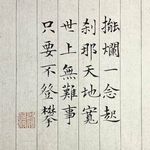 擺爛一念起
刹那天地寬
世上無難事
只要不登攀